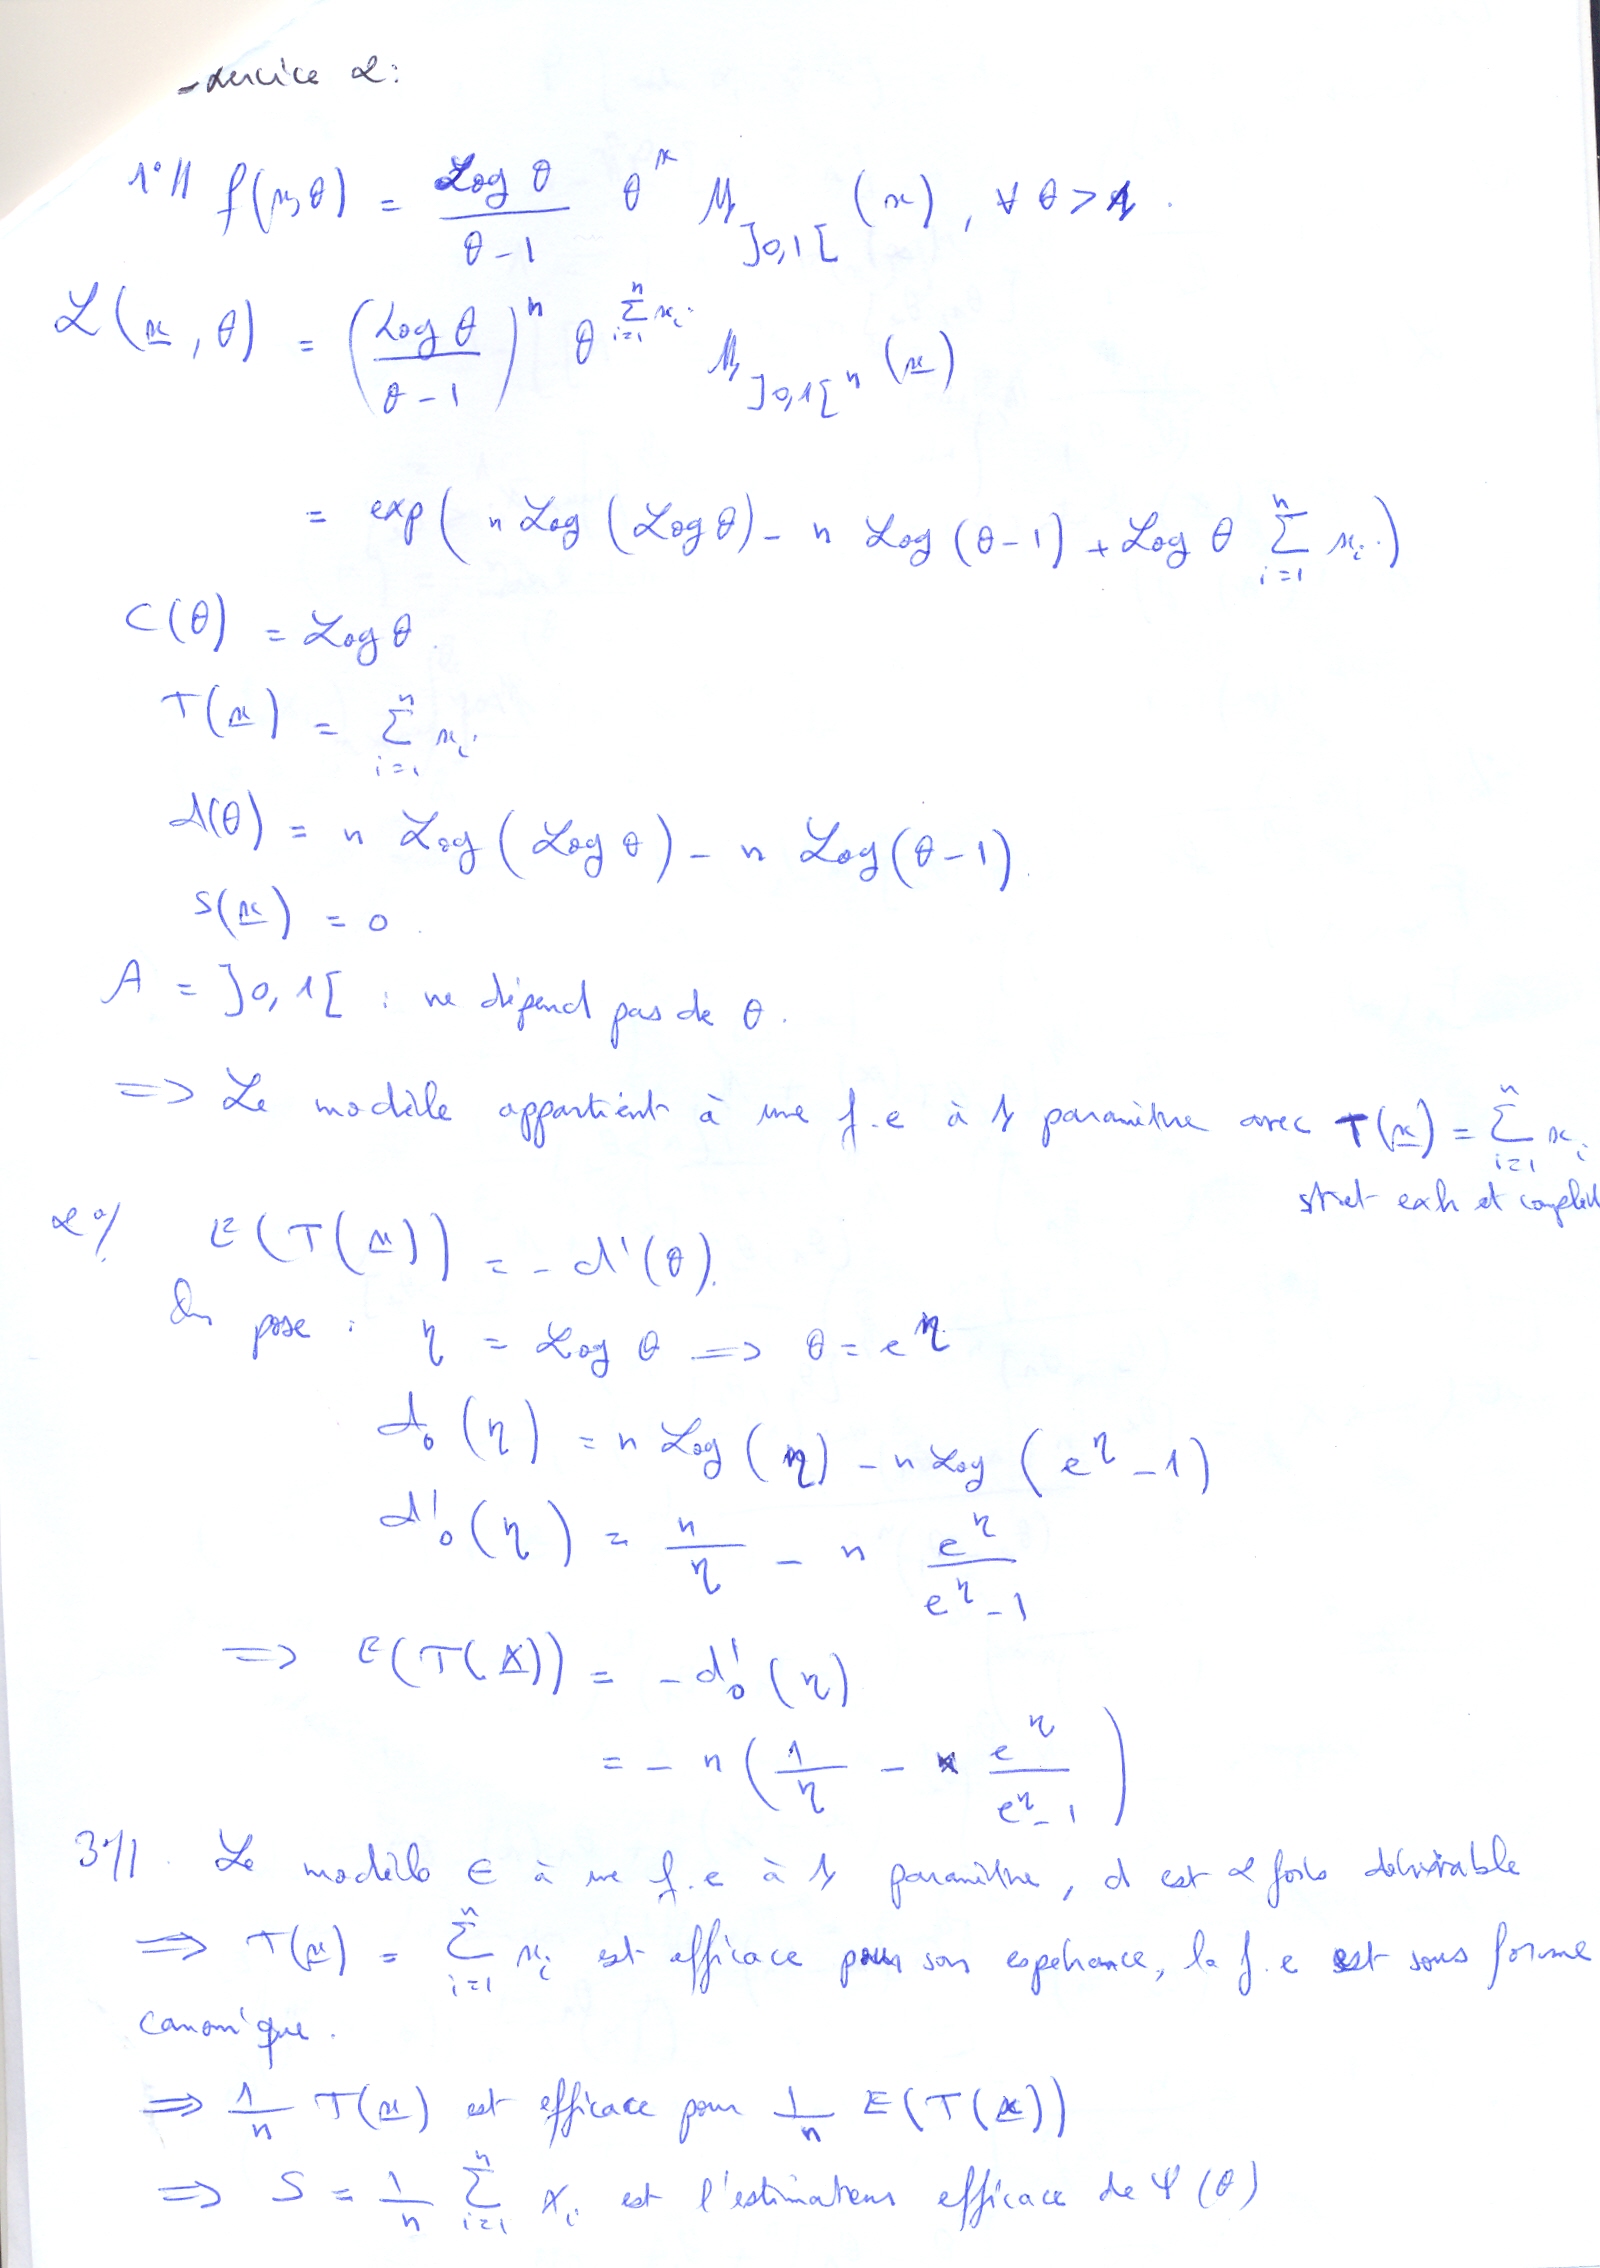 Exercice 2:
1°// f(x,θ) = Log θ / θ-1 θ^x 𝟙_]0,1[ (x), ∀ θ > 1.
L(x, θ) = (Log θ / θ-1)^n θ^Σ_{i=1}^n x_i 𝟙_]0,1[^n (x)
= exp( n Log (Log θ) - n Log (θ-1) + Log θ Σ_{i=1}^n x_i )
C(θ) = Log θ.
T(x) = Σ_{i=1}^n x_i
d(θ) = n Log (Log θ) - n Log (θ-1).
S(x) = 0.
A = ]0, 1[ : ne dépend pas de θ.
=> Le modèle appartient à une f.e à 1 paramètre avec T(x) = Σ_{i=1}^n x_i
stret exh et complet
2°/ E(T(x)) = - d'(θ).
On pose : η = Log θ => θ = e^η
d_0 (η) = n Log (η) - n Log (e^η - 1)
d'_0 (η) = n/η - n e^η / e^η - 1
=> E(T(X)) = - d'_0 (η)
= - n ( 1/η - e^η / e^η - 1 )
3°// Le modèle ∈ à une f.e à 1 paramètre, d est 2 fois dérivable
=> T(x) = Σ_{i=1}^n x_i est efficace pour son espérance, la f.e est sous forme
canonique.
=> 1/n T(x) est efficace pour 1/n E(T(X))
=> S = 1/n Σ_{i=1}^n X_i est l'estimateur efficace de Ψ(θ)